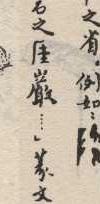 之省。例如：
名之厓巖…」篆文